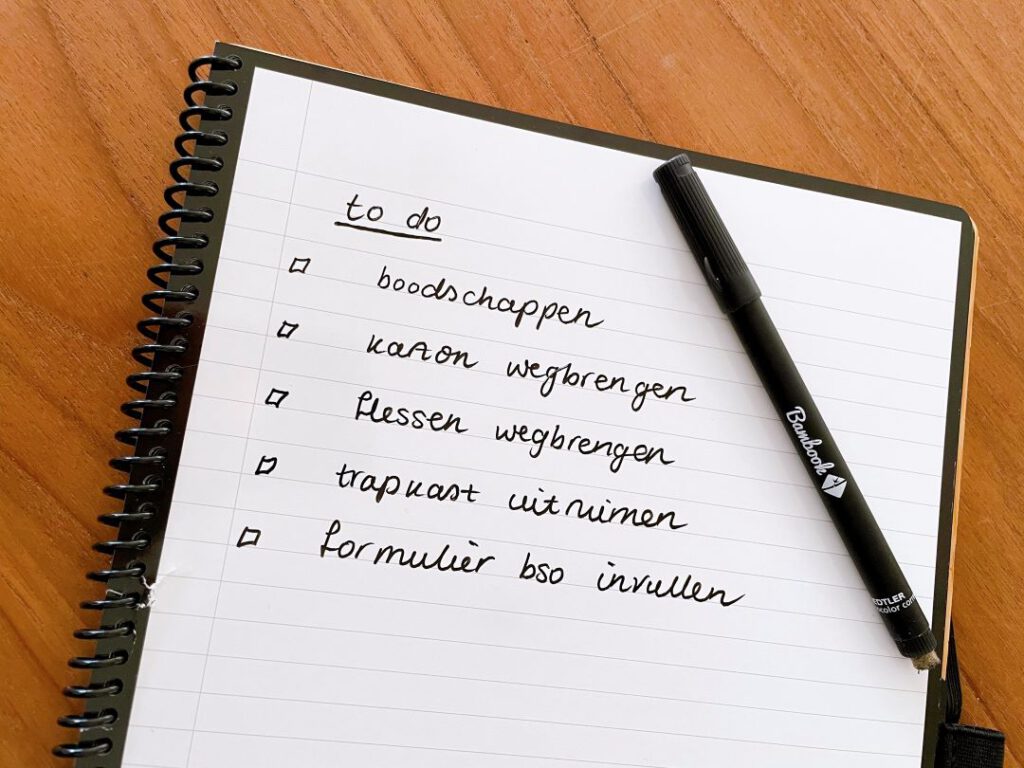 to do
boodschappen
karton wegbrengen
flessen wegbrengen
trapkast uitruimen
formulier bso invullen
Bambook